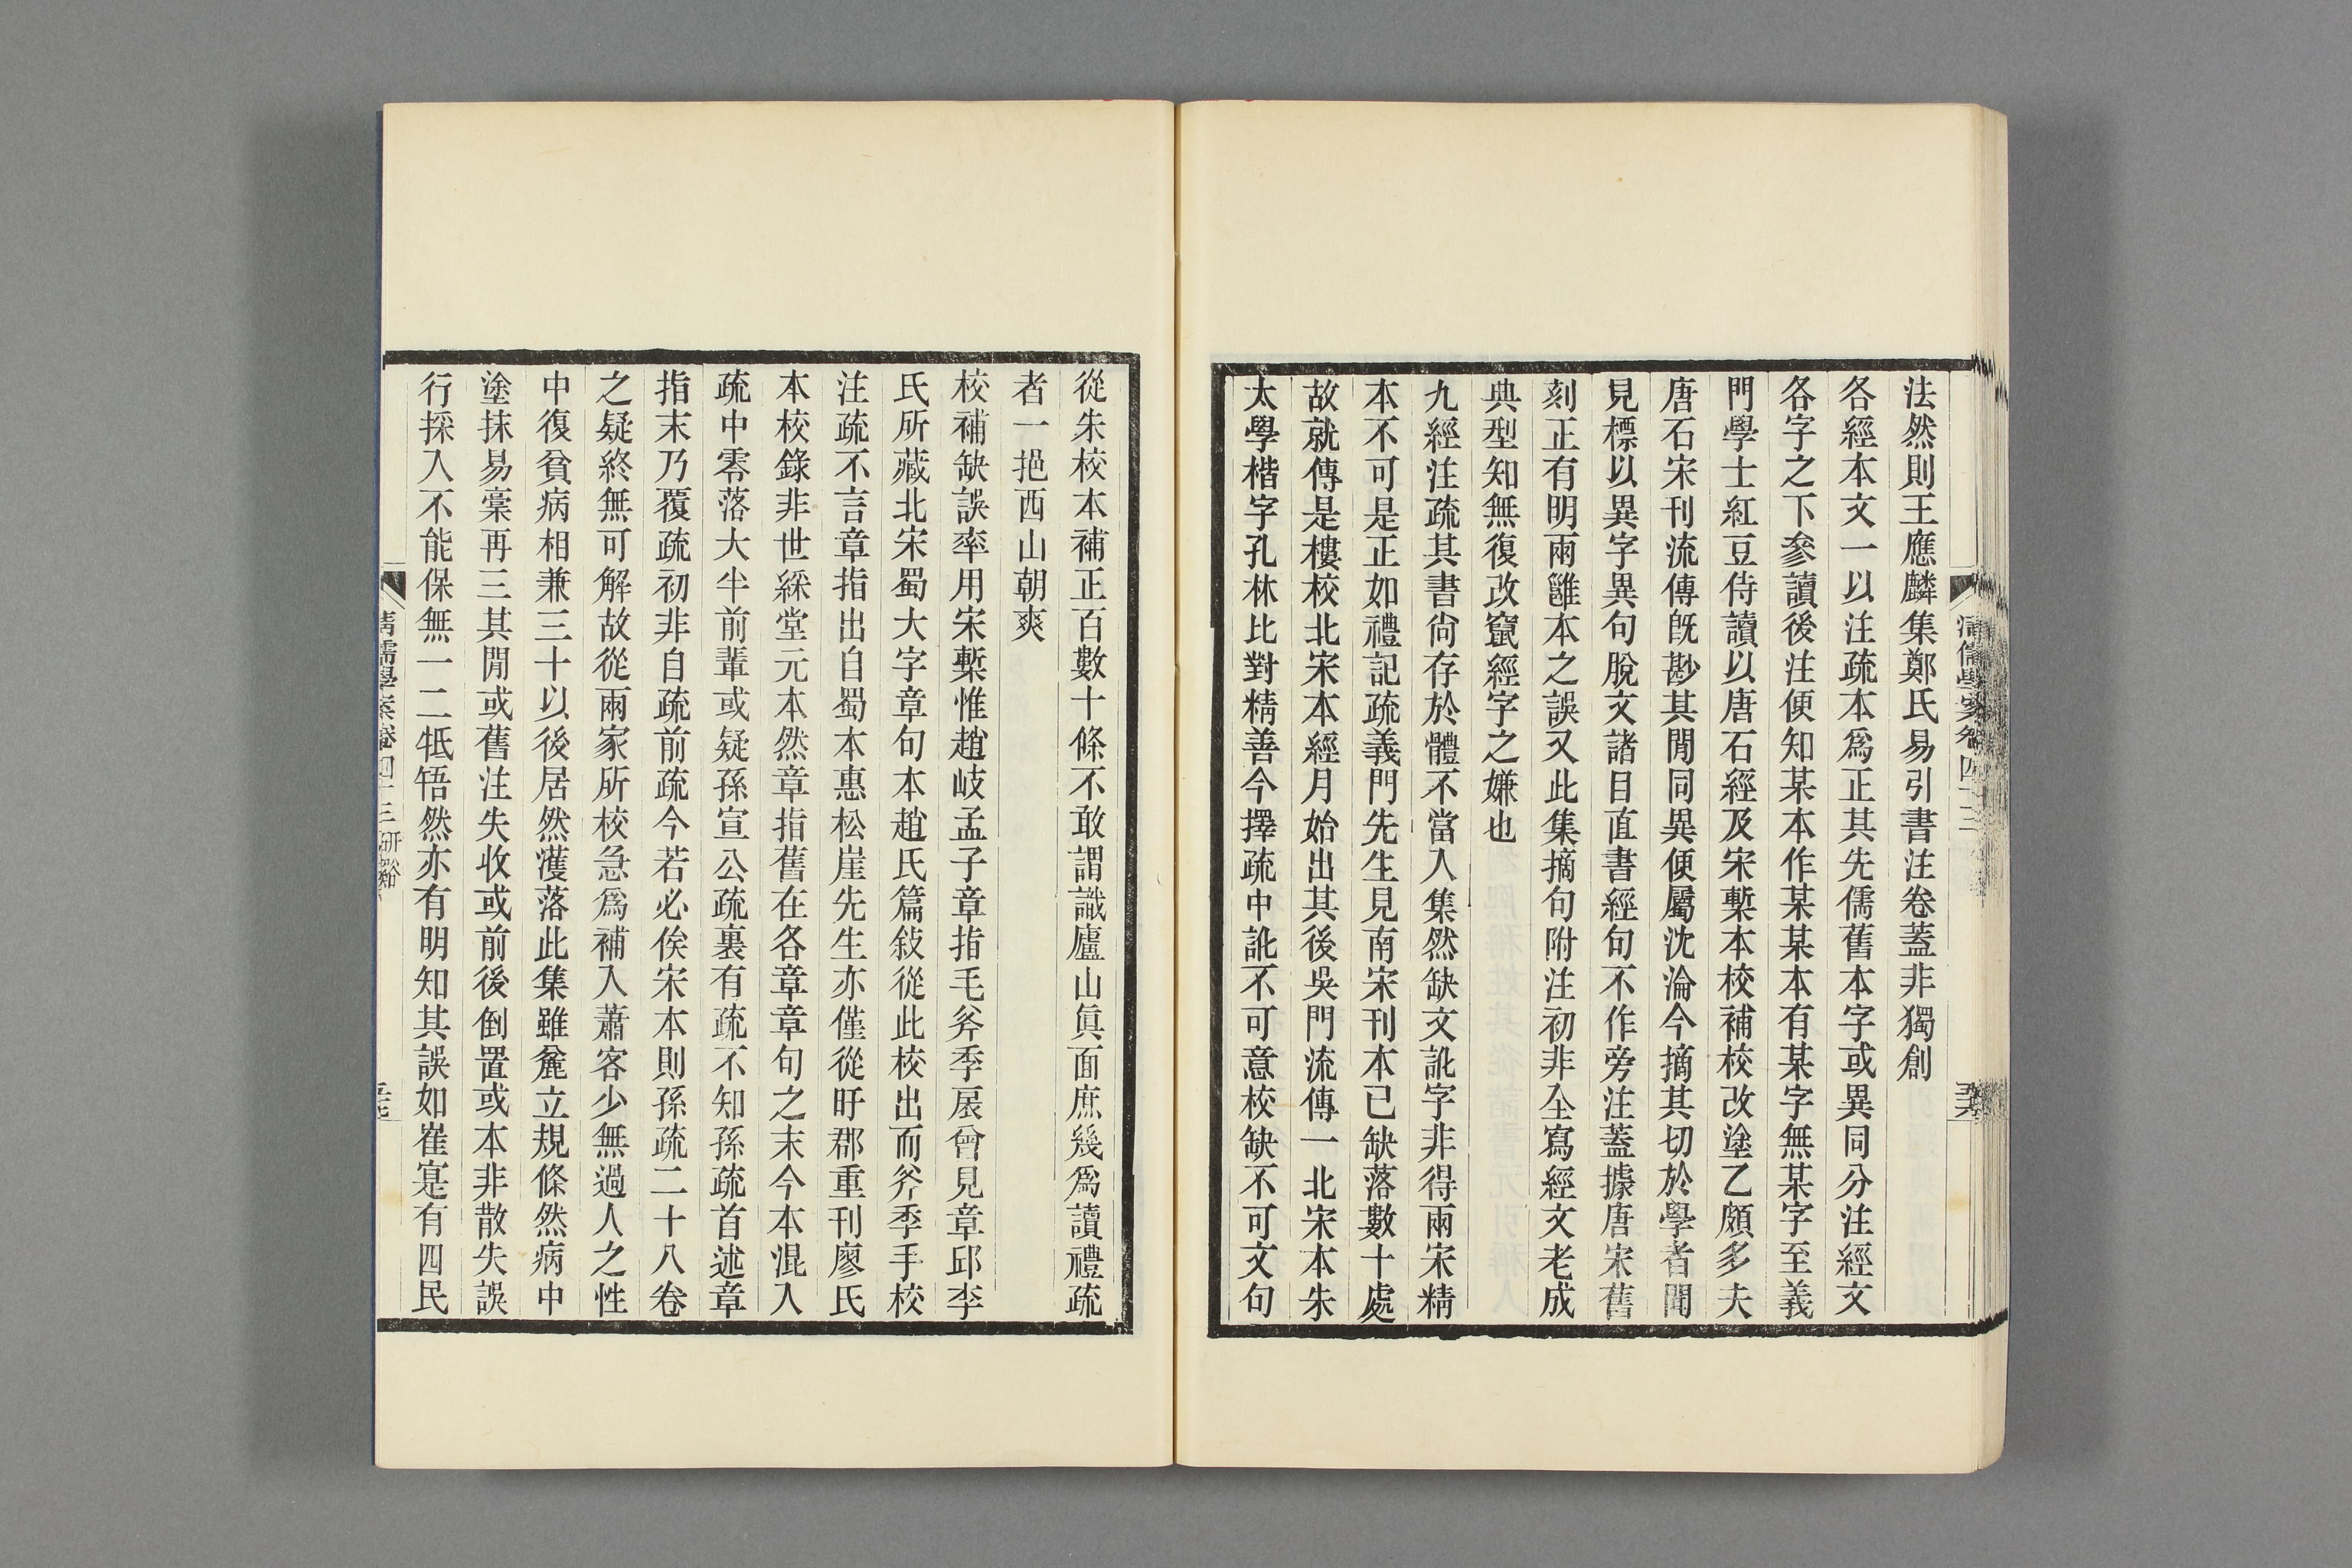 法然則王應麟集鄭氏易引書注卷蓋非獨創
各經本文一以注疏本爲正其先儒舊本字或異同分注經文
各字之下參讀後注便知某本作某某本有某字無某字至義
門學士紅豆侍讀以唐石經及宋槧本校補校改塗乙頗多夫
唐石宋刊流傳旣尠其閒同異便屬沈淪今摘其切於學者聞
見標以異字異句脫文諸目直書經句不作旁注蓋據唐宋舊
刻正有明兩雝本之誤又此集摘句附注初非全寫經文老成
典型知無復改竄經字之嫌也
九經注疏其書尙存於體不當入集然缺文訛字非得兩宋精
本不可是正如禮記疏義門先生見南宋刊本已缺落數十處
故就傳是樓校北宋本經月始出其後吳門流傳一北宋本朱
太學楷字孔林比對精善今擇疏中訛不可意校缺不可文句
清儒學案卷四十三
從朱校本補正百數十條不敢謂識廬山眞面庶幾爲讀禮疏
者一挹西山朝爽
校補缺誤率用宋槧惟趙岐孟子章指毛斧季扆曾見章邱李
氏所藏北宋蜀大字章句本趙氏篇敍從此校出而斧季手校
注疏不言章指出自蜀本惠松崖先生亦僅從盱郡重刊廖氏
本校錄非世綵堂元本然章指舊在各章章句之末今本混入
疏中零落大半前輩或疑孫宣公疏裏有疏不知孫疏首述章
指末乃覆疏初非自疏前疏今若必俟宋本則孫疏二十八卷
之疑終無可解故從兩家所校急爲補入蕭客少無過人之性
中復貧病相兼三十以後居然濩落此集雖麄立規條然病中
塗抹易稾再三其閒或舊注失收或前後倒置或本非散失誤
行採入不能保無一二牴牾然亦有明知其誤如崔寔有四民
清儒學案卷四十三 硏谿